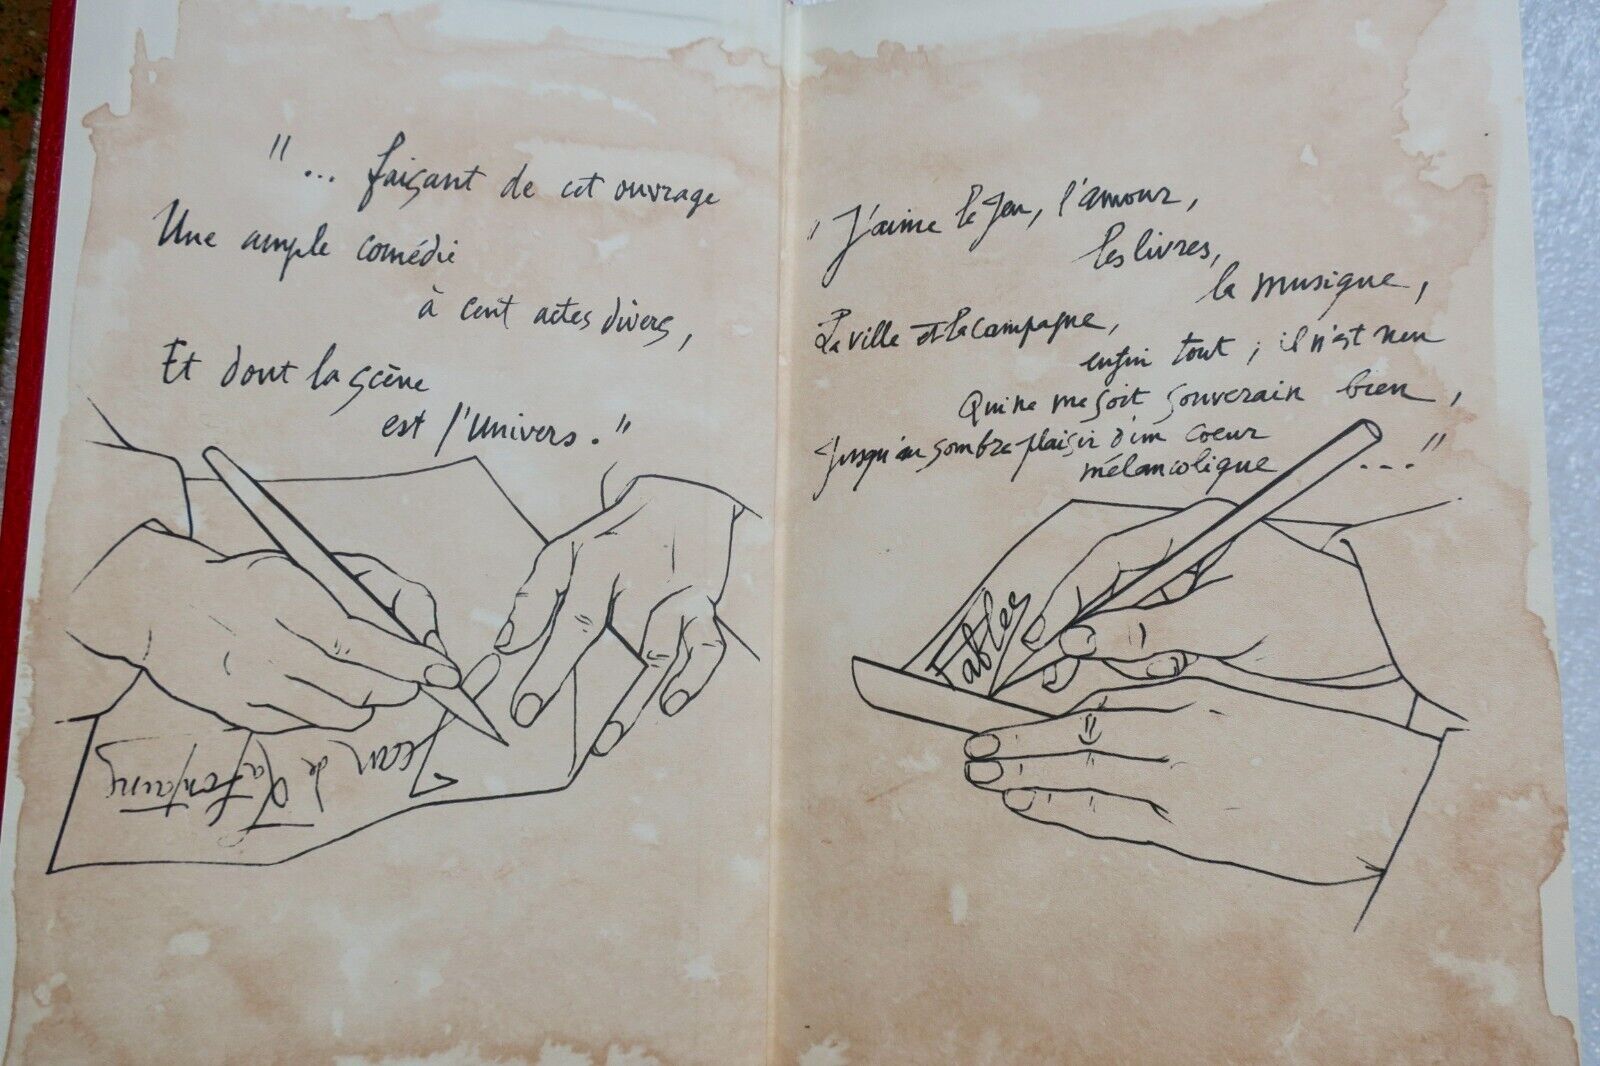 "... faisant de cet ouvrage
Une ample comédie
à cent actes divers,
Et dont la scène
est l'Univers."
Jean de La Fontaine
"J'aime le jeu, l'amour,
les livres,
la musique,
La ville et la campagne,
enfin tout ; il n'est rien
Qui ne me soit souverain bien,
Jusqu'au sombre plaisir d'un coeur
mélancolique ..."
Fables